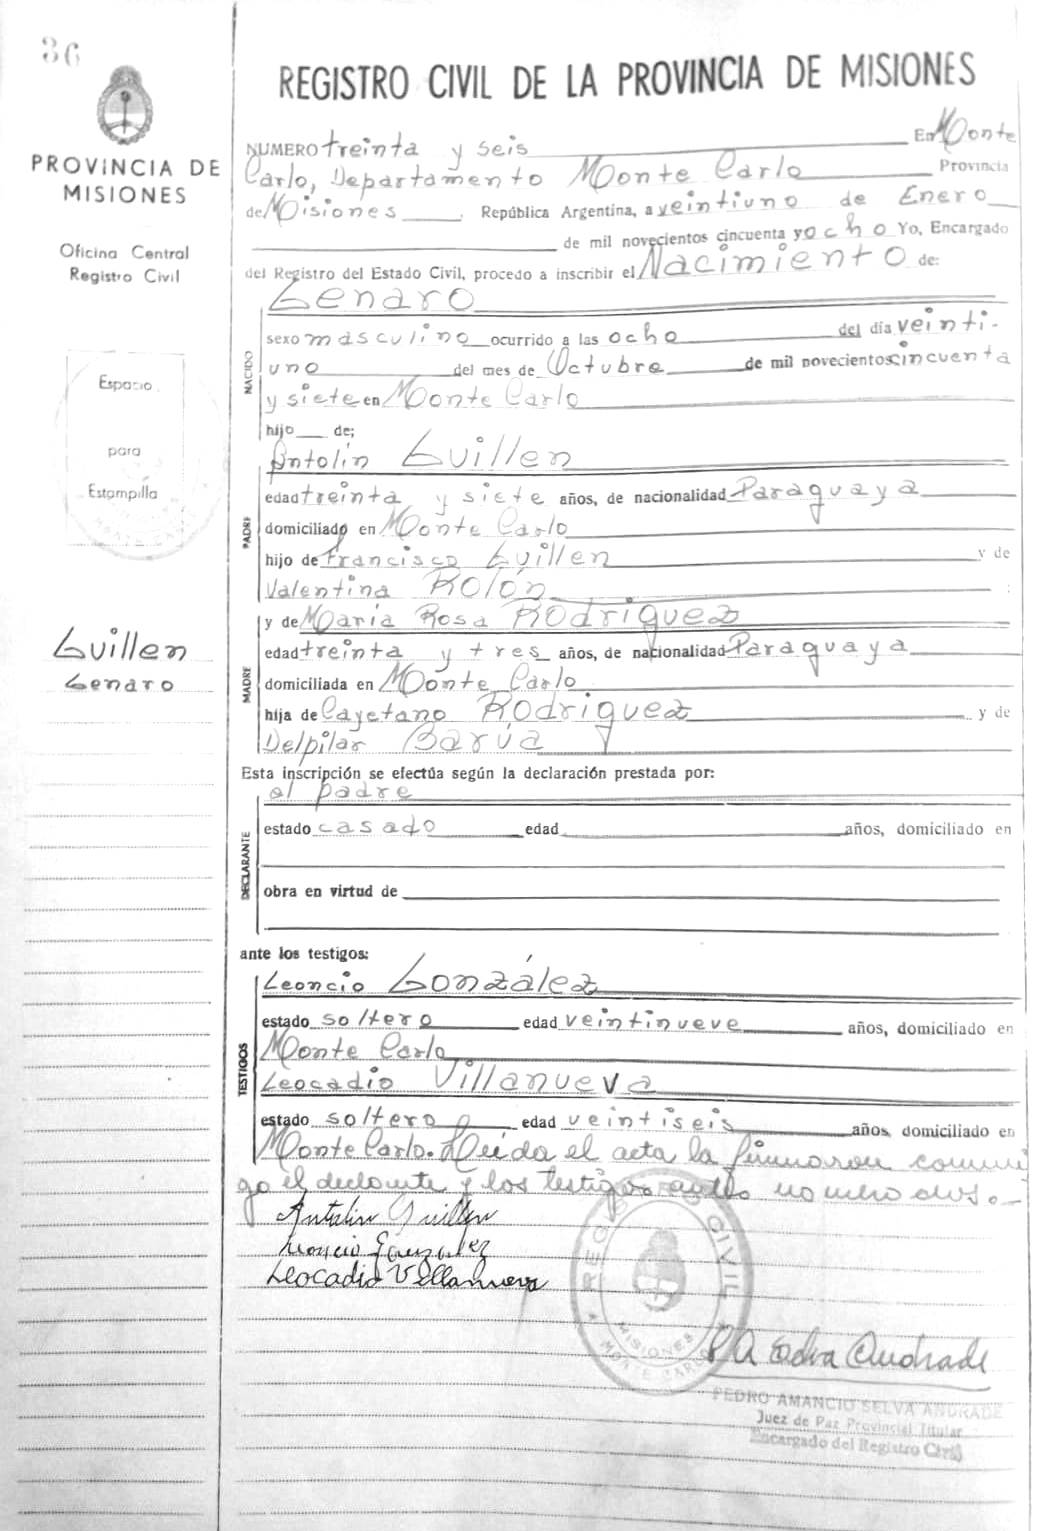 36
PROVINCIA DE
MISIONES
Oficina Central
Registro Civil
Espacio
para
Estampilla
Guillen
Genaro
REGISTRO CIVIL DE LA PROVINCIA DE MISIONES
NUMERO treinta y seis En Monte
Carlo, Departamento Monte Carlo Provincia
de Misiones, República Argentina, a veintiuno de Enero
de mil novecientos cincuenta y ocho Yo, Encargado
del Registro del Estado Civil, procedo a inscribir el Nacimiento de:
Genaro
NACIDO
sexo masculino ocurrido a las ocho del día veinti-
uno del mes de Octubre de mil novecientos cincuenta
y siete en Monte Carlo
hijo de;
Antolín Guillen
PADRE
edad treinta y siete años, de nacionalidad Paraguaya
domiciliado en Monte Carlo
hijo de Francisco Guillen y de
Valentina Rolón ;
y de María Rosa Rodriguez
MADRE
edad treinta y tres años, de nacionalidad Paraguaya
domiciliada en Monte Carlo
hija de Cayetano Rodriguez y de
Delpilar Barúa
Esta inscripción se efectúa según la declaración prestada por:
el padre
DECLARANTE
estado casado edad años, domiciliado en
obra en virtud de
ante los testigos:
Leoncio González
TESTIGOS
estado soltero edad veintinueve años, domiciliado en
Monte Carlo
Leocadio Villanueva
estado soltero edad veintiseis años, domiciliado en
Monte Carlo. Leída el acta la firmaron conmi
go el declarante y los testigos
Antolin Guillen
Leoncio Gonzalez
Leocadio Villanueva
REGISTRO CIVIL
MISIONES
MONTE CARLO
P A Selva Andrade
PEDRO AMANCIO SELVA ANDRADE
Juez de Paz Provincial Titular
Encargado del Registro Civil